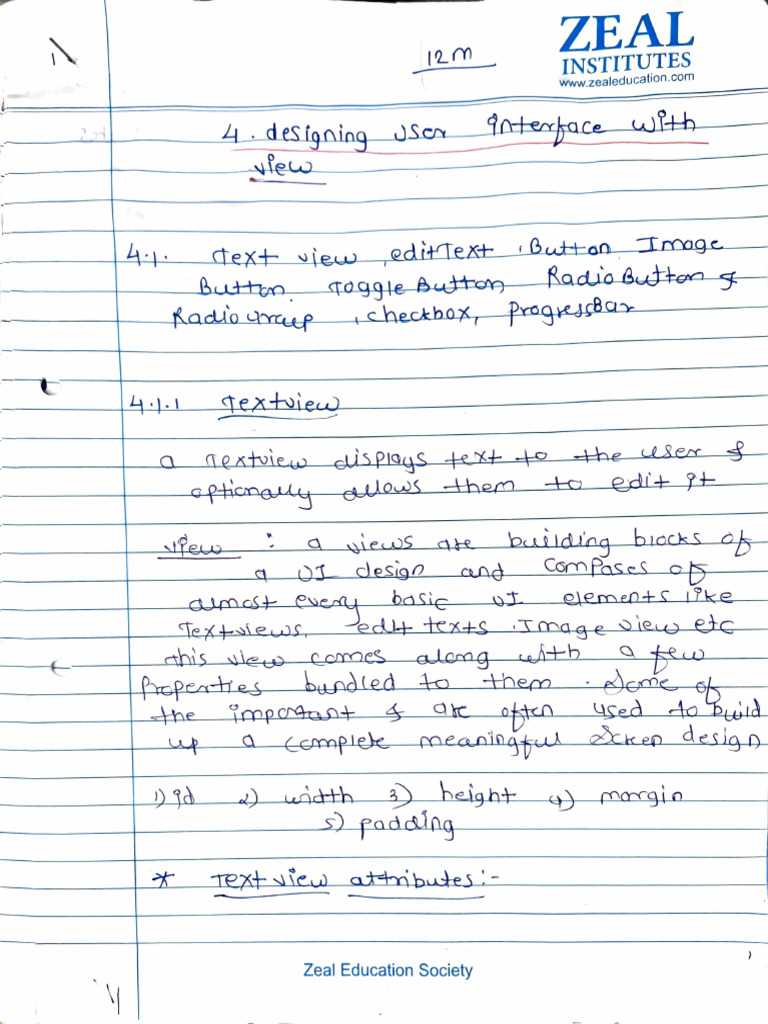 ZEAL
INSTITUTES
www.zealeducation.com
12M
4. designing user interface with
view
4.1. Text view, editText, Button Image
Button, ToggleButton RadioButton &
Radio Group, checkbox, ProgressBar
4.1.1 Textview
a Textview displays text to the user &
optionally allows them to edit it
View : a views are building blocks of
a UI design and composes of
almost every basic UI elements like
Textviews, edit texts, Image view etc
this view comes along with a few
Properties bundled to them. Some of
the important & are often used to build
up a complete meaningful Screen design
1) id 2) width 3) height 4) margin
5) padding
* Text view attributes:-
Zeal Education Society